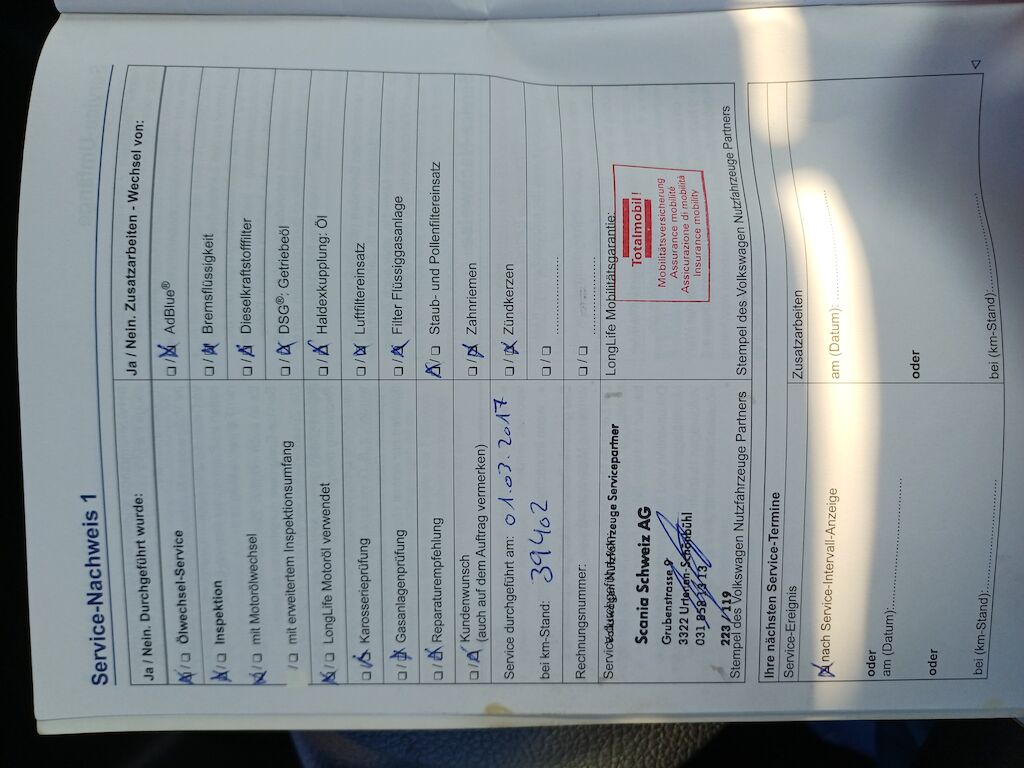 Service-Nachweis 1
Ja / Nein. Durchgeführt wurde:
☒/☐ Ölwechsel-Service
☒/☐ Inspektion
☒/☐ mit Motorölwechsel
/☐ mit erweitertem Inspektionsumfang
☒/☐ LongLife Motoröl verwendet
☐/☒ Karosserieprüfung
☐/☒ Gasanlagenprüfung
☐/☒ Reparaturempfehlung
☐/☒ Kundenwunsch
(auch auf dem Auftrag vermerken)
Service durchgeführt am: 01.03.2017
bei km-Stand: 39402
Rechnungsnummer:
Volkswagen Nutzfahrzeuge Servicepartner
Scania Schweiz AG
Grubenstrasse 9
3322 Urtenen-Schönbühl
031
223 / 119
Stempel des Volkswagen Nutzfahrzeuge Partners
Ja / Nein. Zusatzarbeiten - Wechsel von:
☐/☒ AdBlue®
☐/☒ Bremsflüssigkeit
☐/☒ Dieselkraftstofffilter
☐/☒ DSG®: Getriebeöl
☐/☒ Haldexkupplung: Öl
☐/☒ Luftfiltereinsatz
☐/☒ Filter Flüssiggasanlage
☒/☐ Staub- und Pollenfiltereinsatz
☐/☒ Zahnriemen
☐/☒ Zündkerzen
☐/☐ ..............................
☐/☐ ..............................
LongLife Mobilitätsgarantie:
Totalmobil!
Mobilitätsversicherung
Assurance mobilité
Assicurazione di mobilità
Insurance mobility
Stempel des Volkswagen Nutzfahrzeuge Partners
Ihre nächsten Service-Termine
Service-Ereignis
☒ nach Service-Intervall-Anzeige
oder
am (Datum):..............................
oder
bei (km-Stand):..............................
Zusatzarbeiten
am (Datum):..............................
oder
bei (km-Stand):..............................